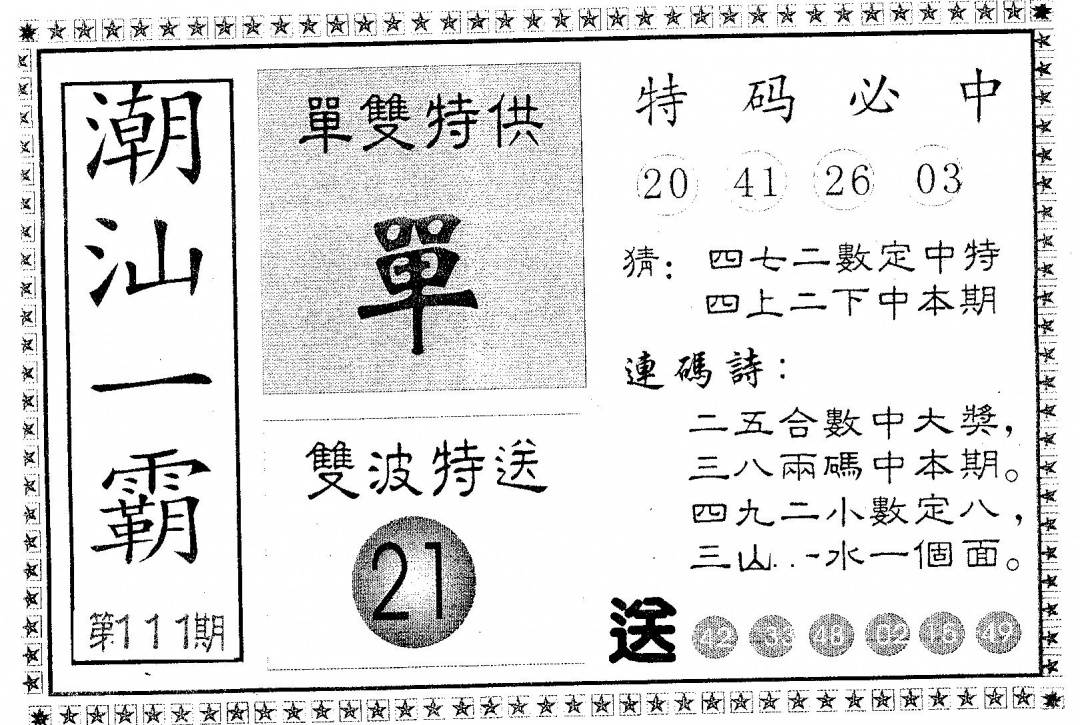 潮汕一霸
第111期
單雙特供
單
雙波特送
21
特码必中
20 41 26 03
猜：四七二數定中特
四上二下中本期
連碼詩：
二五合數中大獎，
三八兩碼中本期。
四九二小數定八，
三山 水一個面。
送 42 33 48 02 49